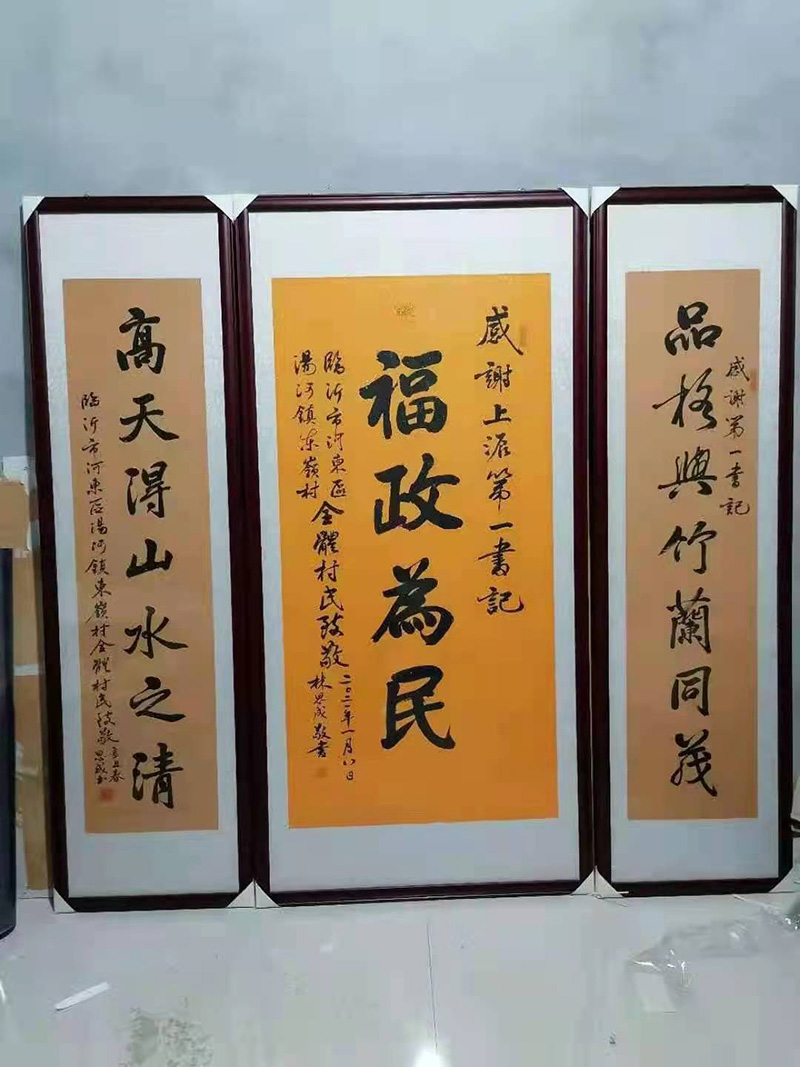 感謝第一書記
品格與竹蘭同茂
感謝上派第一書記
福政為民
臨沂市河東區
湯河鎮东嶺村
全體村民致敬
二〇二一年一月八日
林思成敬書
高天得山水之清
臨沂市河東区湯河鎮東嶺村全體村民致敬
辛丑春
思成书